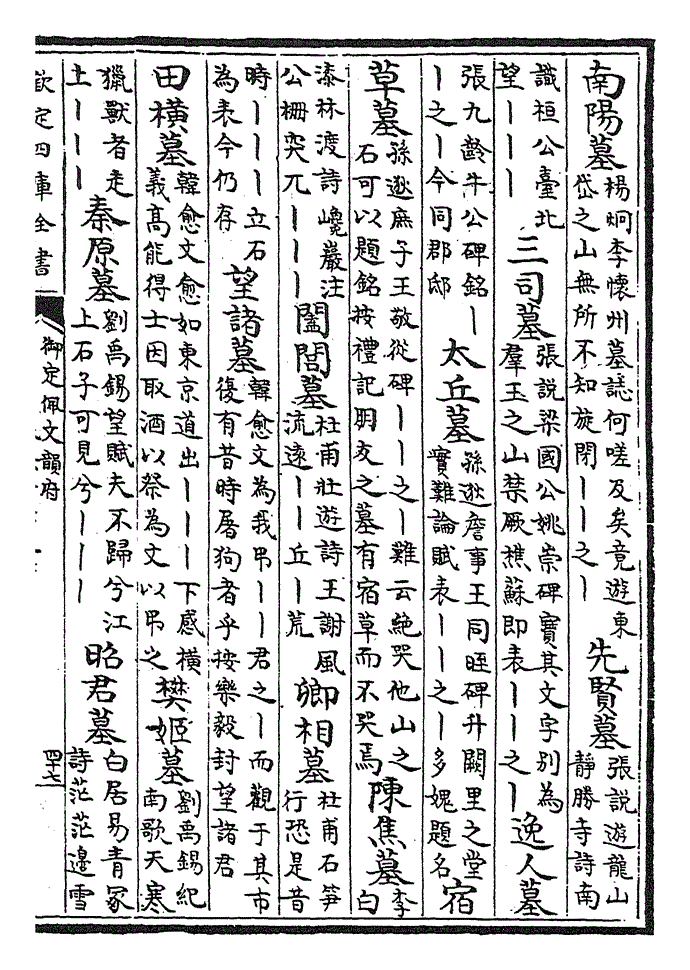 南陽墓楊炯李懷州墓誌何嗟及矣竟遊東岱之山無所不知旋閉丨丨之丨先賢墓張說遊龍山靜勝寺詩南
識桓公臺北望丨丨丨三司墓張說梁國公姚崇碑寶其文字別為羣玉之山禁厥樵蘇即表丨丨之丨逸人墓
張九齡牛公碑銘丨丨之丨今同郡邸太丘墓孫逖詹事王同晊碑升闕里之堂實難論賦表丨丨之丨多媿題名宿
草墓孫逖庶子王敬從碑丨丨之丨難云絶哭他山之石可以題銘按禮記朋友之墓有宿草而不哭焉陳焦墓李白
漆林渡詩巉巖注公柵突兀丨丨丨闔閭墓杜甫壯遊詩王謝風流遠丨丨丘丨荒卿相墓杜甫石笋行恐是昔
時丨丨丨立石為表今仍存望諸墓韓愈文為我弔丨丨君之丨而觀于其市復有昔時屠狗者乎按樂毅封望諸君
田橫墓韓愈文愈如東京道出丨丨丨下感橫義髙能得士因取酒以祭為文以弔之樊姬墓劉禹錫紀南歌天寒
獵獸者走上丨丨丨秦原墓劉禹錫望賦夫不歸兮江上石子可見兮丨丨丨昭君墓白居易青冢詩茫茫邊雪
欽定四庫全書
御定佩文韻府
四十七